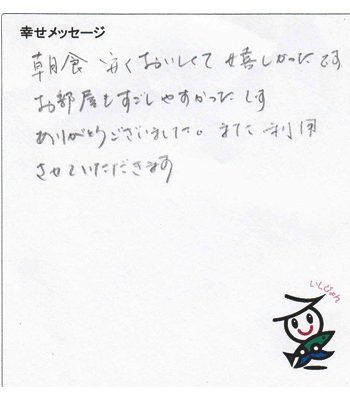 幸せメッセージ
朝食 安くおいしくて 嬉しかったです
お部屋もすごしやすかったです
ありがとうございました。また 利用
させていただきます
いしぴょん